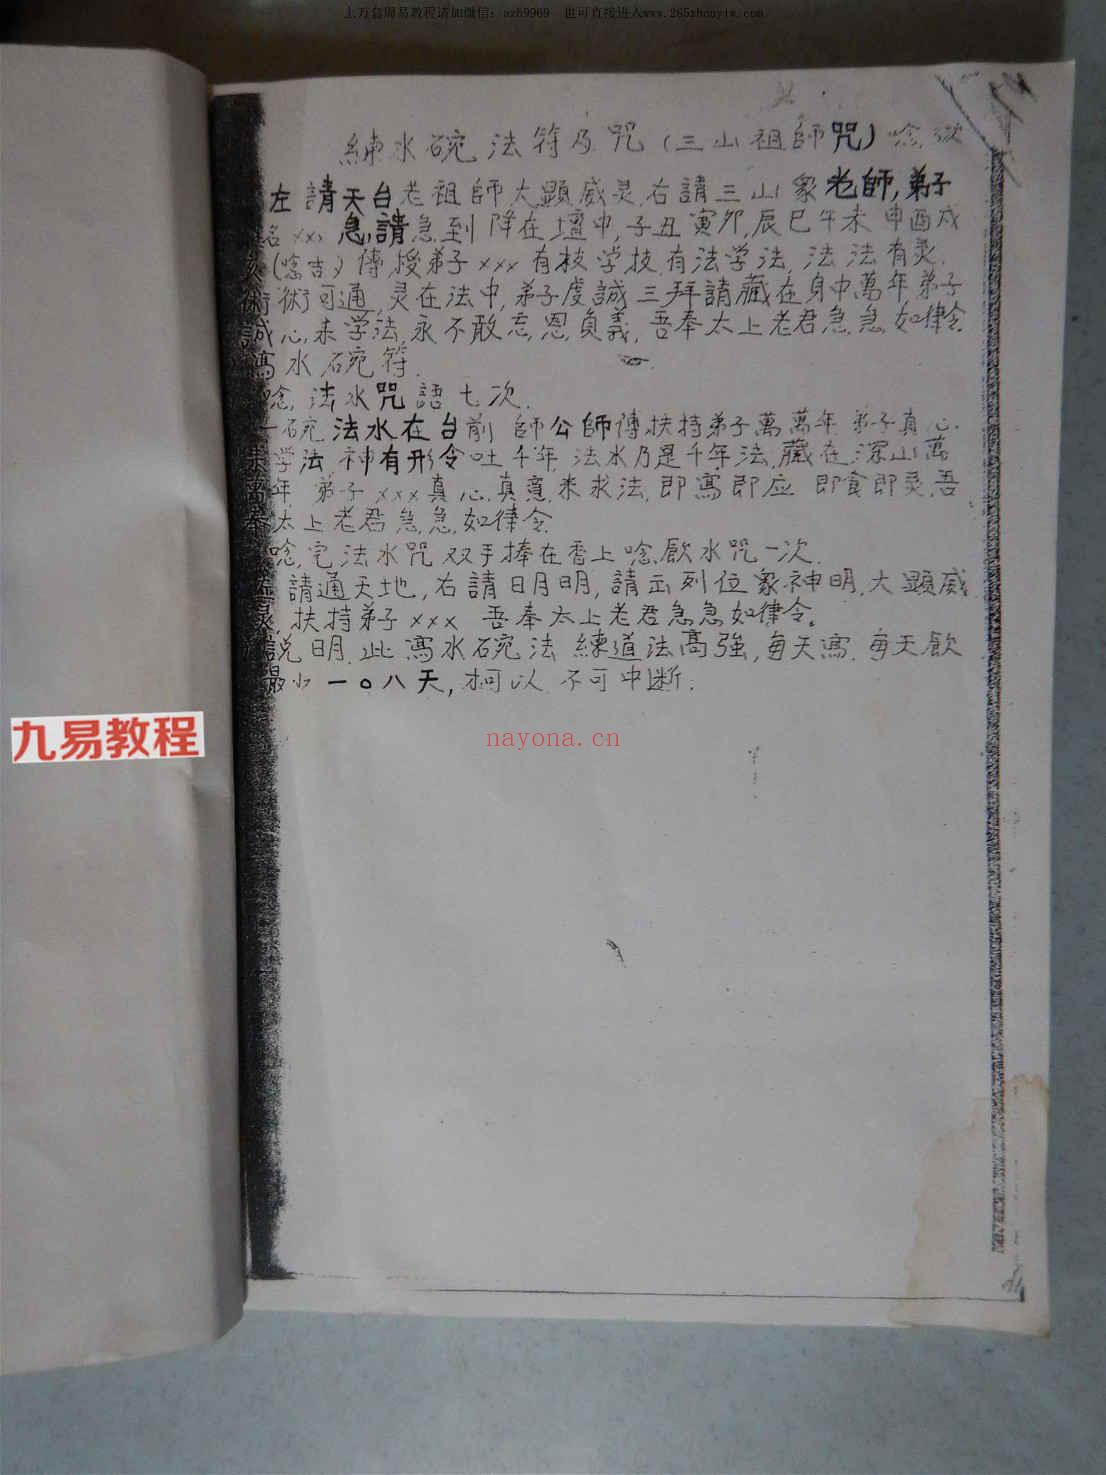 上万套周易教程请加微信：az69969 也可直接进入www.265zhouyiw.com
練水碗法符乃咒（三山祖師咒）唸
左請天台老祖師大顯威灵,右請三山眾老師,弟子
xxx急請急到降在壇中,子丑寅卯,辰巳午未申酉戌
(唸吉)傳授弟子xxx有枝学技,有法学法,法法有灵.
術術可通,灵在法中,弟子虔誠三拜請藏在身中萬年,弟子
誠心来学法,永不敢忘恩負義,吾奉太上老君急急如律令
寫水碗符.
唸法水咒語七次.
一碗法水在台前 師公師傅扶持弟子萬萬年 弟子真心
学法,神有形令吐千年,法水乃是千年法,藏在深山萬
年 弟子xxx真心真意来求法,即寫即应 即食即灵,吾
奉太上老君急急如律令
唸完法水咒双手捧在香上唸飲水咒一次.
請通天地,右請日月明,請出列位眾神明,大顯威
灵,扶持弟子xxx 吾奉太上老君急急如律令。
說明,此寫水碗法 練道法高強,每天寫.每天飲
最少一〇八天,才可以 不可中断.
九易教程
nayona.cn